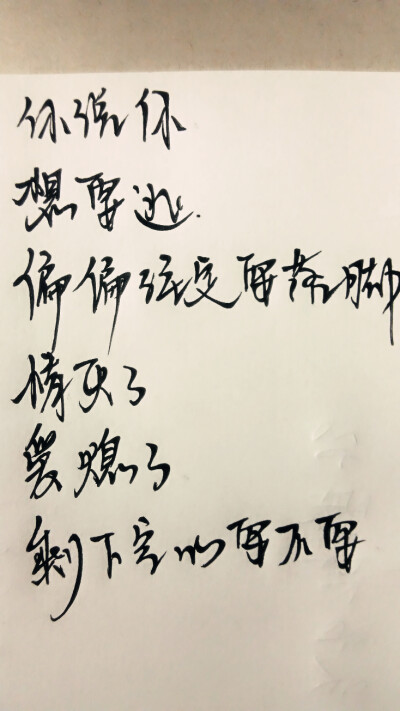 你说你
想要逃
偏偏注定要落脚
情灭了
爱熄了
剩下空心要不要